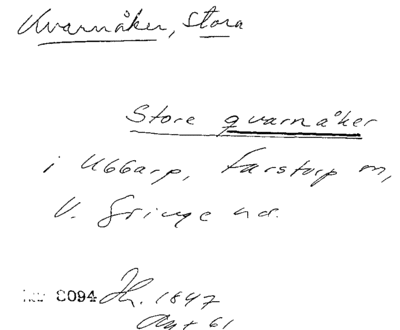 Kvarnåker, Stora
Store qvarnåker
i Ubbarp, Farstorp sn,
V. Göinge hd.
8094 Lh. 1847
Akt 61